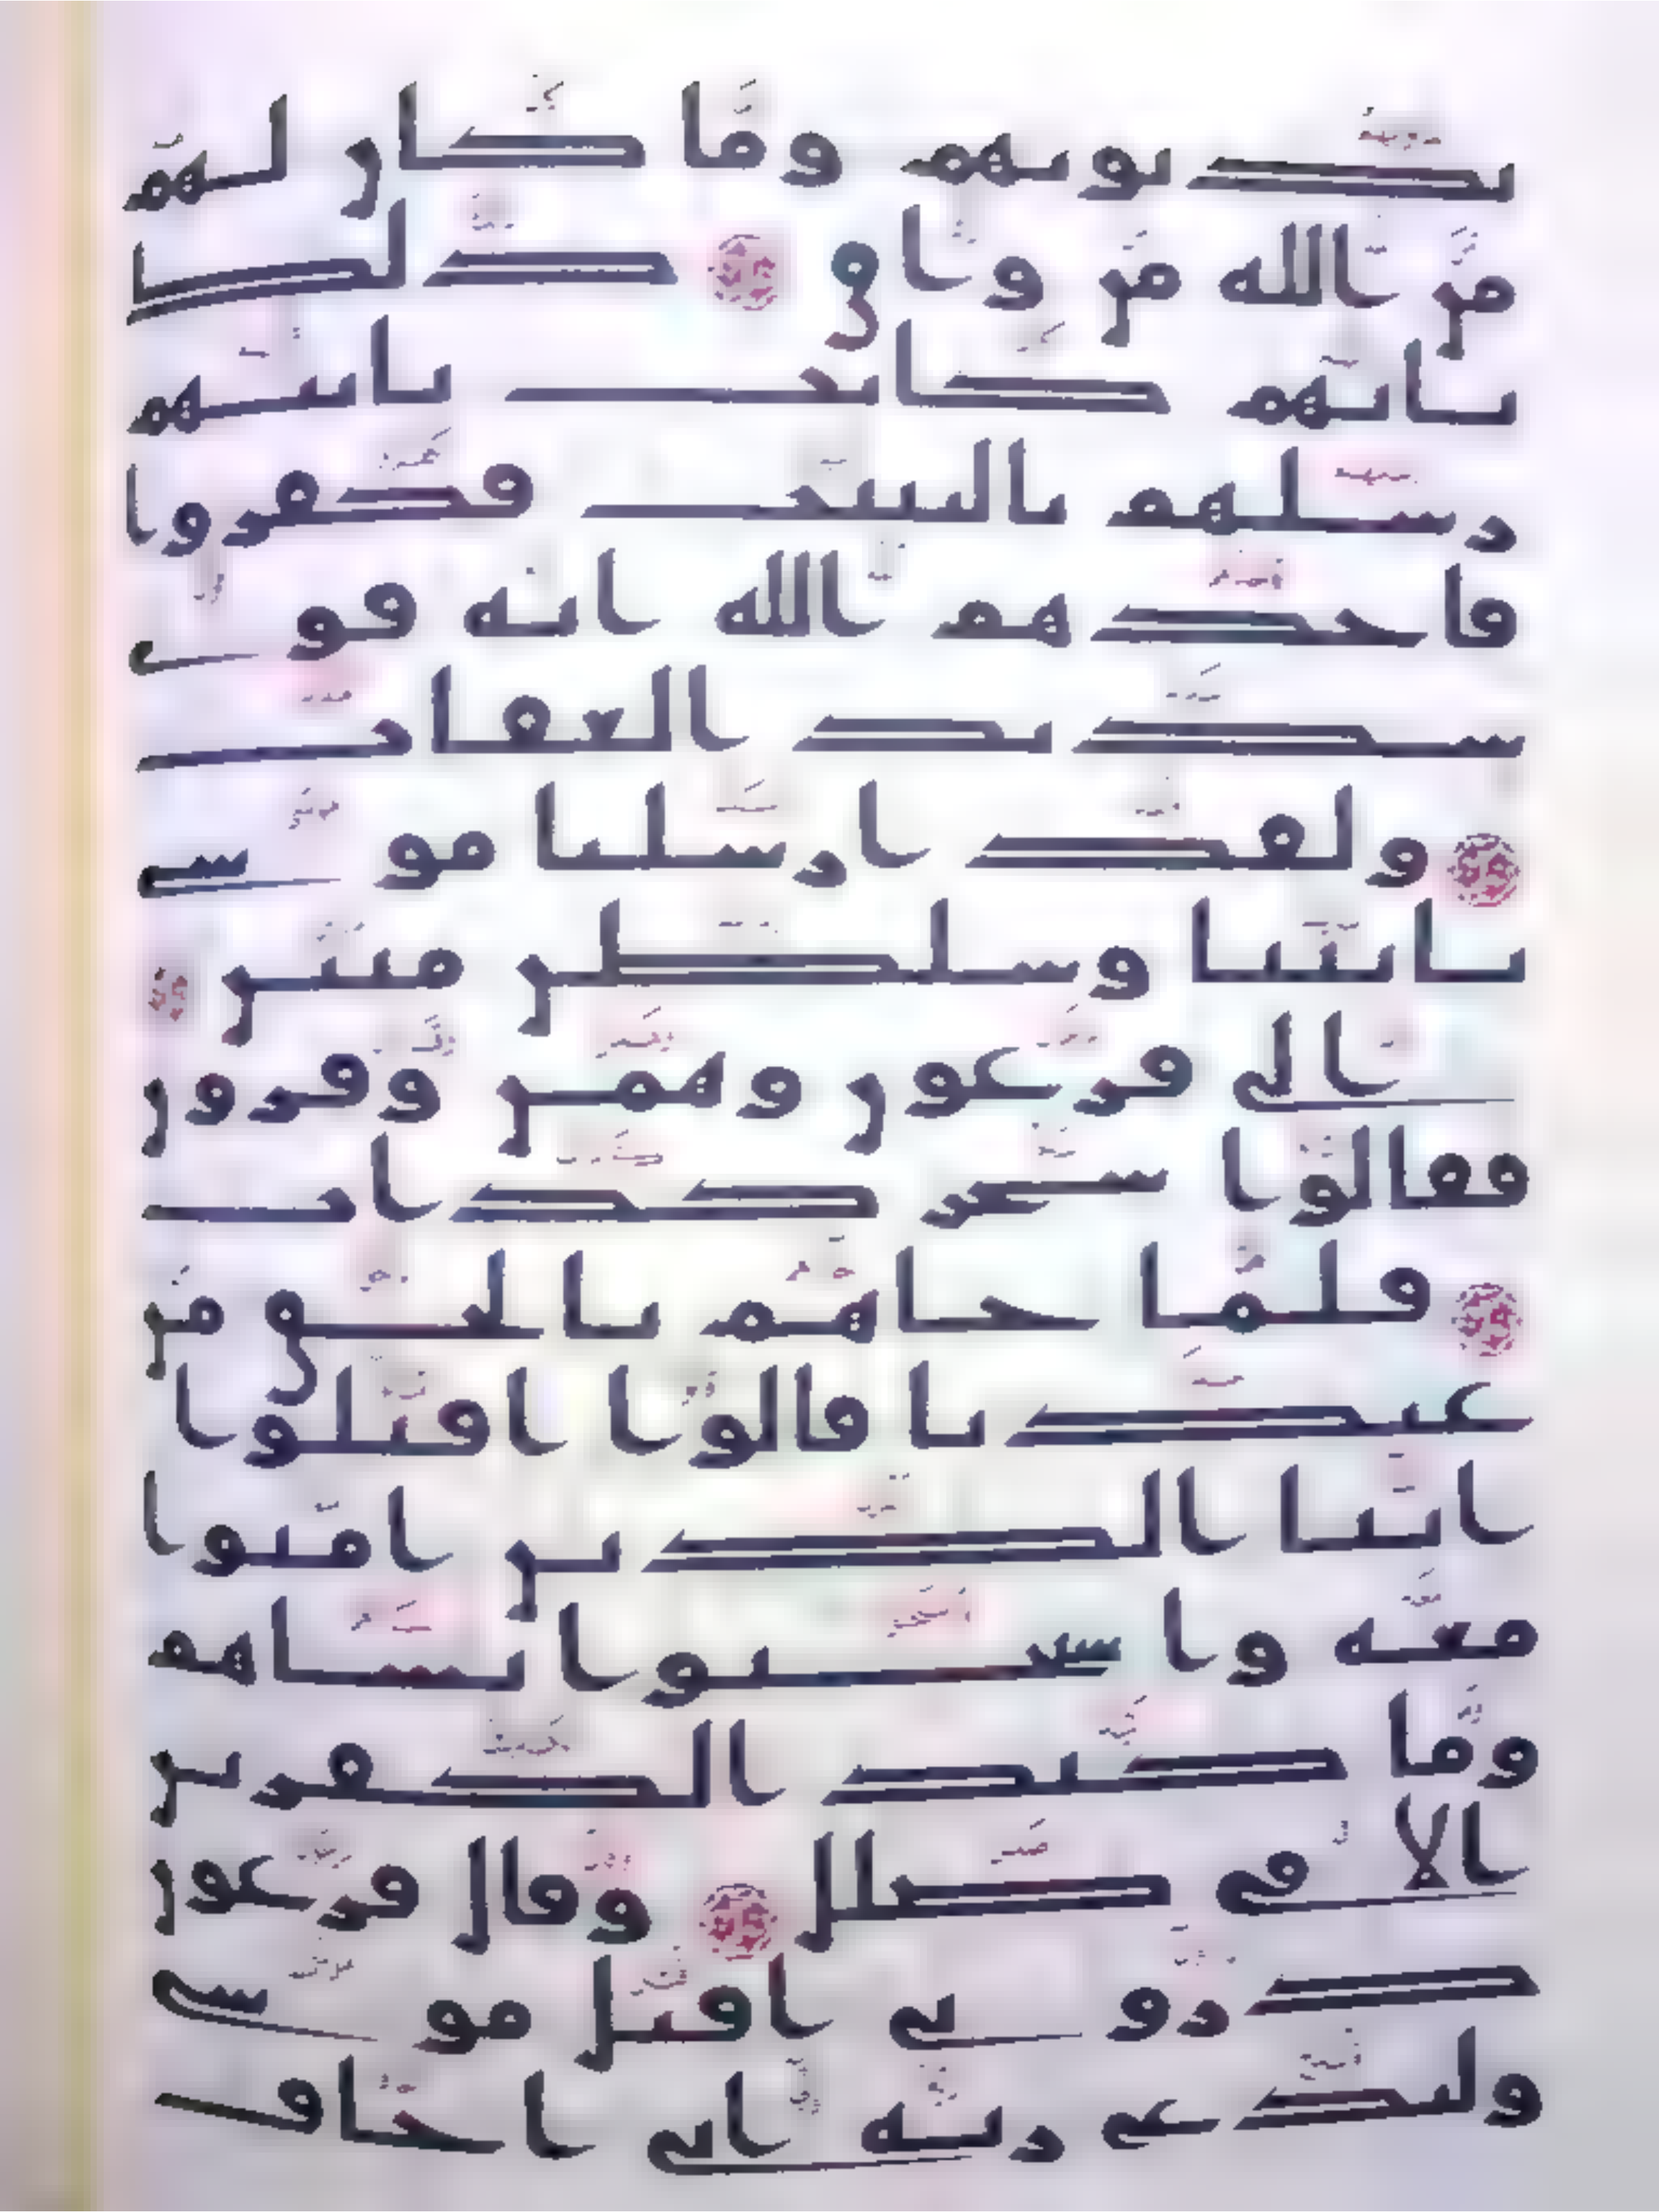 بذنوبهم وما كان لهم
من الله من واق ذلك
بانهم كانت تاتيهم
رسلهم بالبينت فكفروا
فاخذهم الله انه قوى
شديد العقاب
ولقد ارسلنا موسى
بايتنا وسلطن مبين
الى فرعون وهمن وقرون
فقالوا سحر كذاب
فلما جاهم بالحق من
عندنا قالوا اقتلوا
ابنا الذين امنوا
معه واستحيوا نساهم
وما كيد الكفرين
الا فى ضلل وقال فرعون
ذرونى اقتل موسى
وليدع ربه انى اخاف